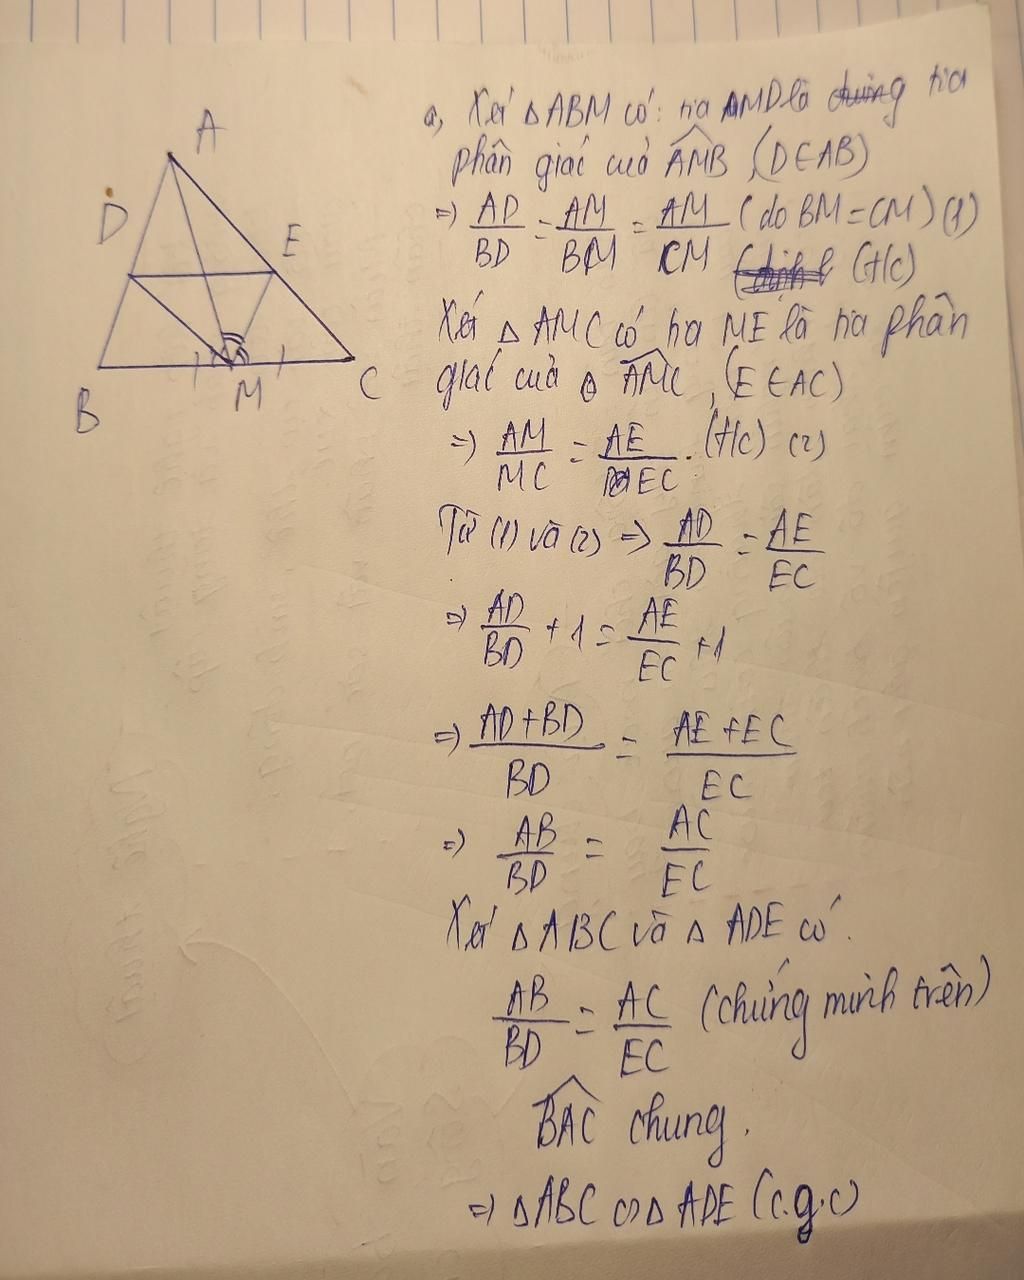 A
D
E
B
M
C
a, Xét △ABM có: tia MD là tia
phân giác của AMB, (D∈AB)
=> AD/BD = AM/BM = AM/CM (do BM = CM) (1)
(t/c)
Xét △ AMC có tia ME là tia phân
giác của AMC, (E ∈ AC)
=> AM/MC = AE/EC. (t/c) (2)
Từ (1) và (2) => AD/BD = AE/EC
=> AD/BD + 1 = AE/EC + 1
=> AD+BD/BD = AE+EC/EC
=> AB/BD = AC/EC
Xét △ABC và △ ADE có:
AB/BD = AC/EC (chứng minh trên)
BAC chung.
=> △ABC ∽ △ ADE (c.g.c)